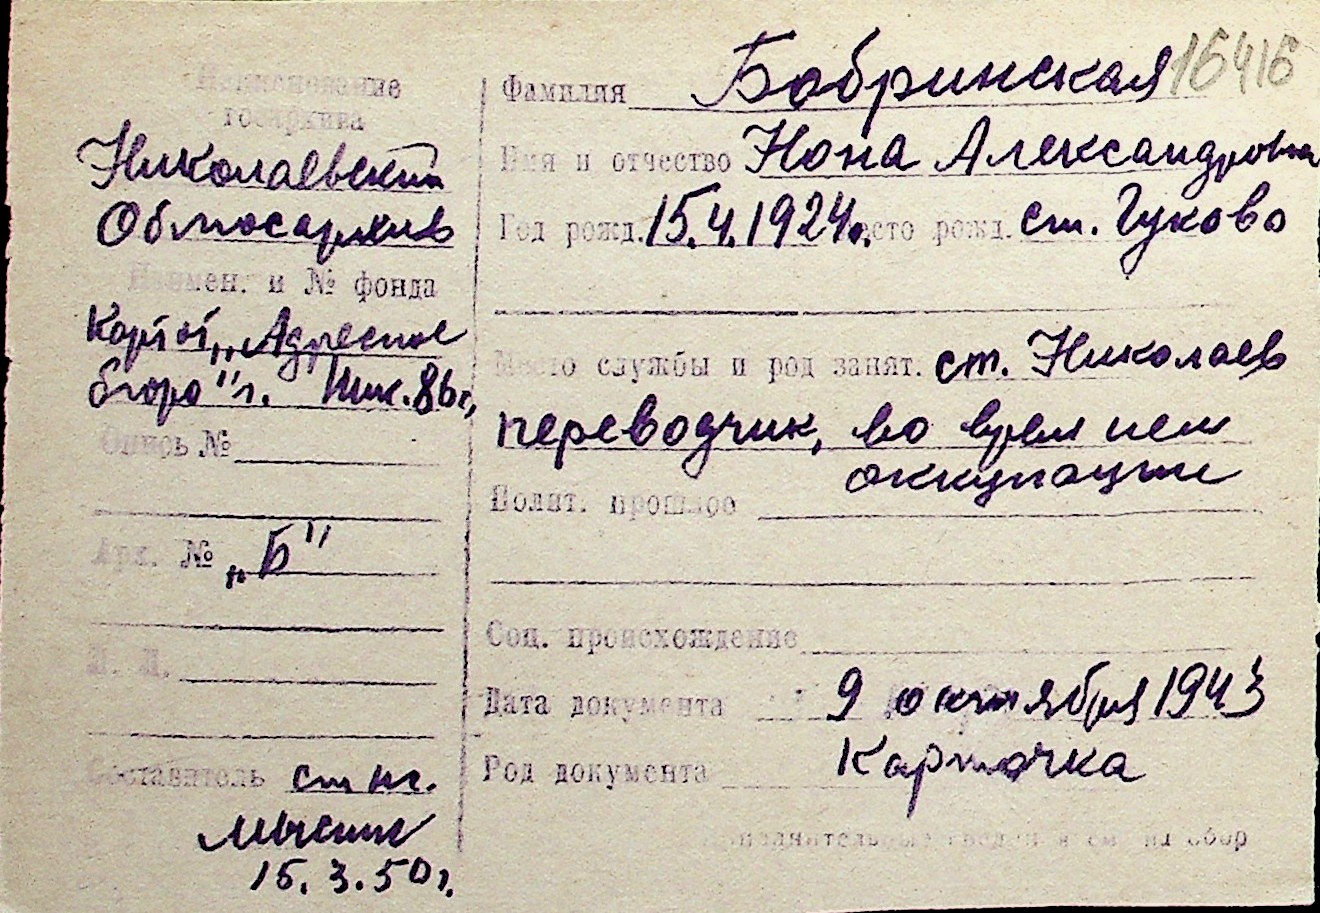 Наименование
госархива
Николаевский
Облгосархив
Наимен. и № фонда
"Адресное
бюро" г. Ник. 86г,
Опись №
Арх. № „Б"
Л. Л.
Составитель
15.3.50г.
Фамилия Бобринская 16416
Имя и отчество Нона Александровна
Год рожд. 15.4.1924г. место рожд. ст. Гуково
Место службы и род занят. ст. Николаев
переводчик, во врем нем
оккупации
Полит. прошлое
Соц. происхождение
Дата документа 9 октября 1943
Род документа Карточка
Дополнительные сведения см. на обор